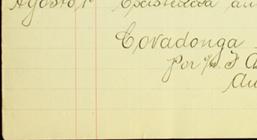 Agosto, 1º Existencia an
Covadonga
Por % F. A
Au